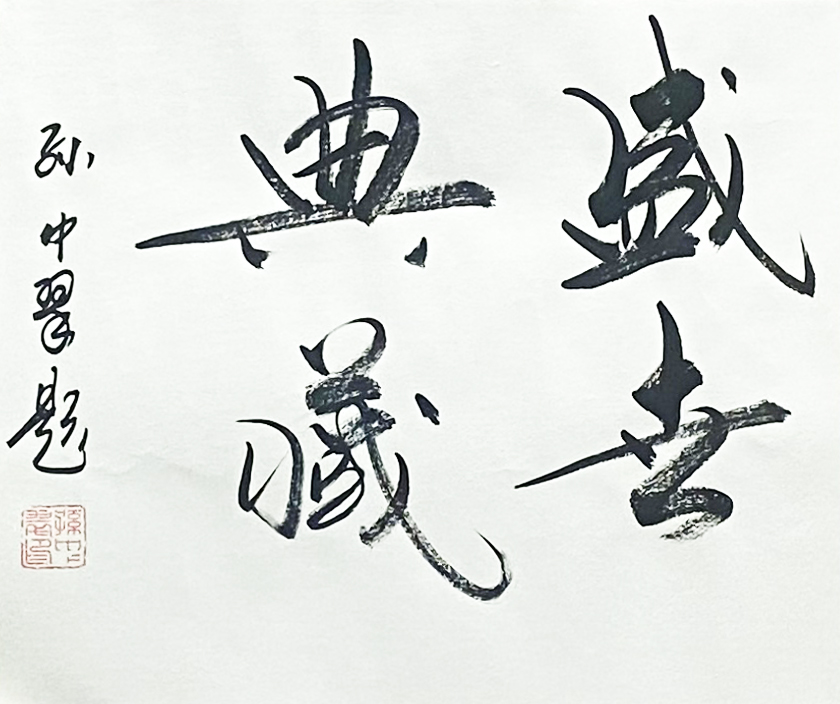 盛世
典藏
孙中翠题